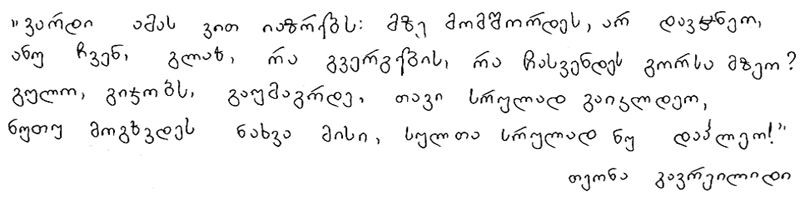 „ვარდი ამას ვით იაზრებს: მზე მომშორდეს, არ დავჭნეო,
ანუ ჩვენ, გლახ, რა გვერგების, რა ჩასვენდეს გორსა მზეო?
გულო, გიჯობს, გაუმაგრდე, თავი სრულად გაიკლდეო,
ნუთუ მოგხვდეს ნახვა მისი, სულთა სრულად ნუ დაჰლეო!“
თეონა გავრეილიდი